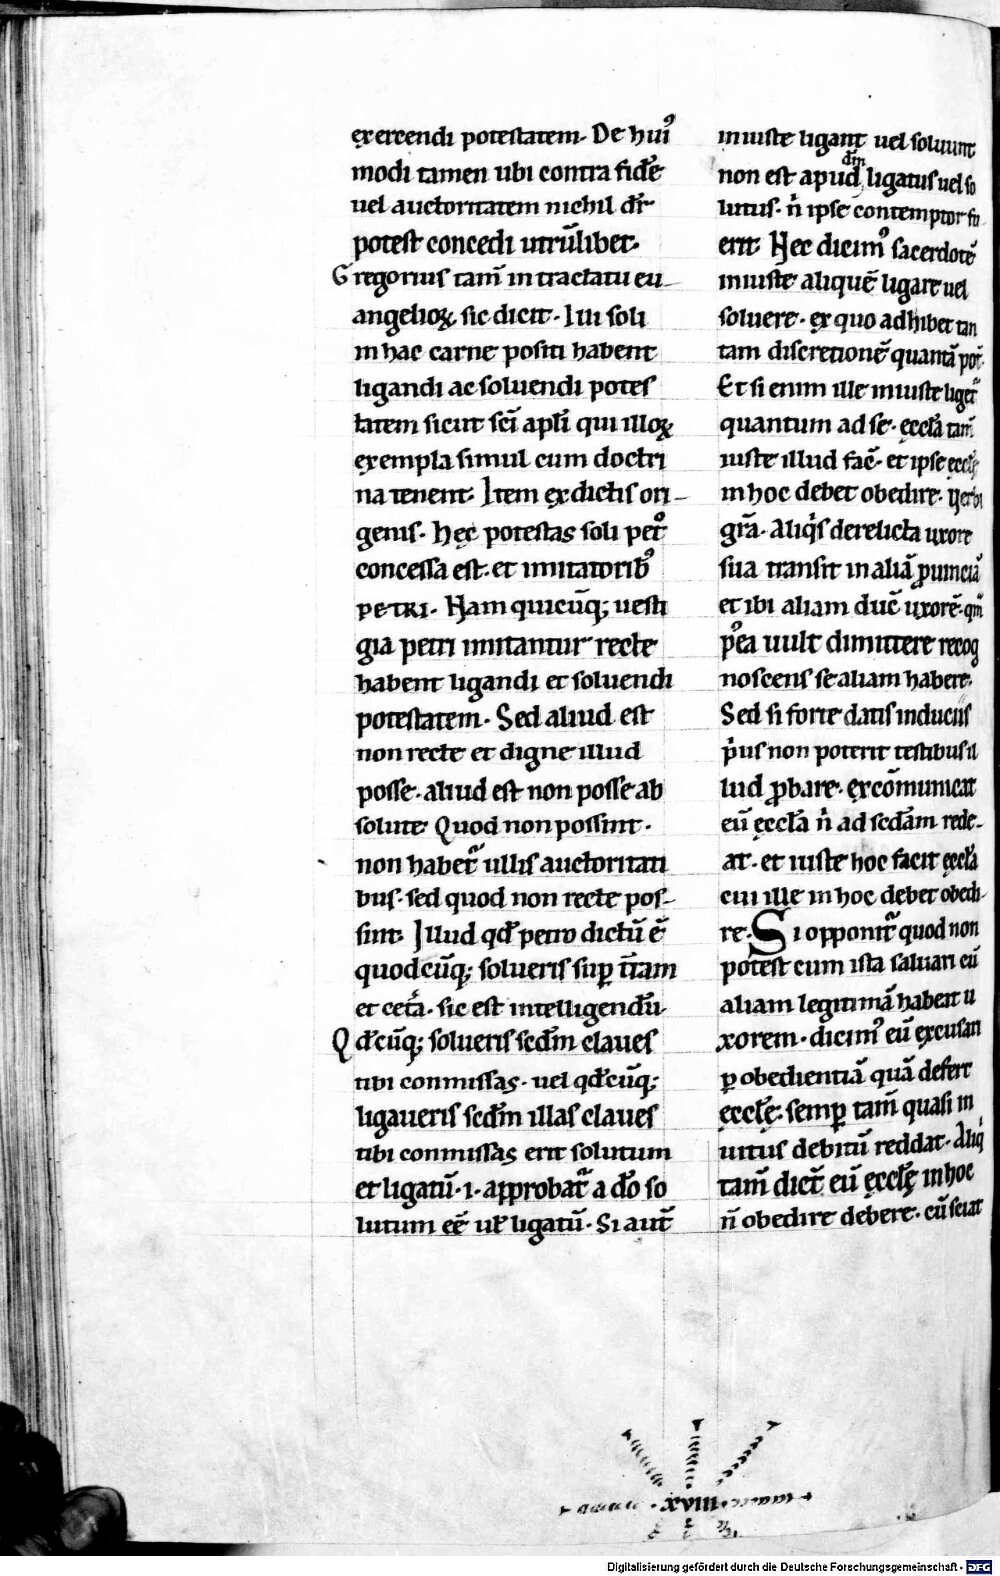 exercendi potestatem. De hui᾽
modi tamen ubi contra fidē
uel auctoritatem nichil dr̄
potest concedi utrūlibet.
Gregorius tam̄ in tractatu eu-
angelioꝝ sic dicit. Illi soli
in hac carne positi habent
ligandi ac soluendi potes
tatem sicut sc̄i apl̄i qui illoꝝ
exempla simul cum doctri
na tenent. Item ex dictis ori-
genis. Hęc potestas soli petᷣo
concessa est. et imitatorib᾽
PETRI. Nam quicūq; uesti
gia petri imitantur recte
habent ligandi et soluendi
potestatem. Sed aliud est
non recte et digne illud
posse. aliud est non posse ab
solute Quod non possint.
non habet᷑ ullis auctoritati
bus. sed quod non recte pos-
sint. Illud qd̄ petro dictū ē
quodcūq; solueris sup̱ t̄ram
et cet̃a. sic est intelligendū.
Qd̄cūq; solueris scd̄m claues
tibi commissas. uel qd̄cūq;
ligaueris scd̄m illas claues
tibi commissas erit solutum
et ligatū. i. approbat᷑ a dō so
lutum eē ul̄ ligatū. Si aut̄
iniuste ligant uel soluunt
dm̄
non est apud, ligatus uel so
lutus. nͥ ipse contemptor fu
erit. Hec dicim᾽ sacerdotē
iniuste aliquē ligare uel
soluere. ex quo adhibet tan
tam discretionē quantā pot̄.
Et si enim ille iniuste liget᷑
quantum ad se. ęccl̄a tam̄
iuste illud fac̄. et ipse ęccl̄ę
in hoc debet obedire. Uerbi
gr̄a. Aliqͥs derelicta uxore
sua transit in aliā ꝓuinciā
et ibi aliam duc̄ uxorē. qm̄
p᾽ea uult dimittere recog
noscens se aliam habere.
Sed si forte datis induciis
pͥus non poterit testibus il
lud ꝓbare. excōmunicat
eū ęccl̄a nͥ ad scd̄am rede-
at. et iuste hoc facit ęccl̄a
cui ille in hoc debet obedi-
re. Si opponit᷑ quod non
potest cum ista saluari cū
aliam legitimā habeat u
xorem. dicim᾽ eū excusari
ꝑ obedientiā quā defert
ęccl̄ę. semꝑ tam̄ quasi in
uitus debitū reddat. Aliqͥ
tam̄ dic̄t eū ęccl̄ę in hoc
n̄ obedire debere. cū sciat
.xviii.
Digitalisierung gefördert durch die Deutsche Forschungsgemeinschaft - DFG